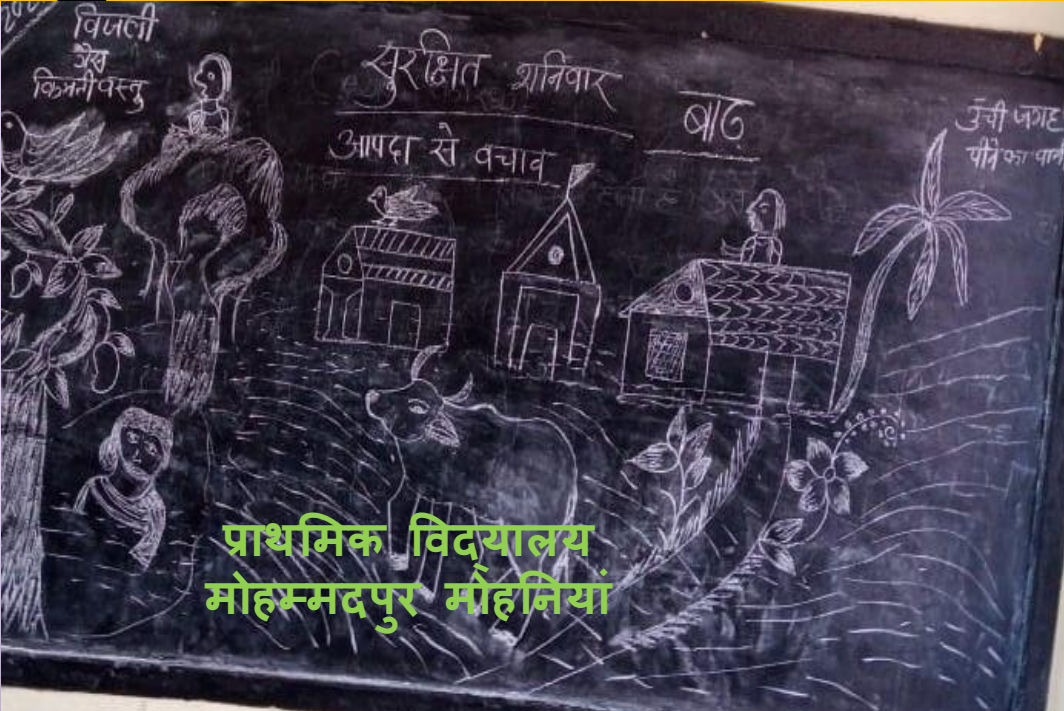 विजली
गैस
किमती वस्तु
सुरक्षित शनिवार
आपदा से बचाव
बाढ
उँची जगह
पीने का
प्राथमिक विद्यालय
मोहम्मदपुर मोहनियां